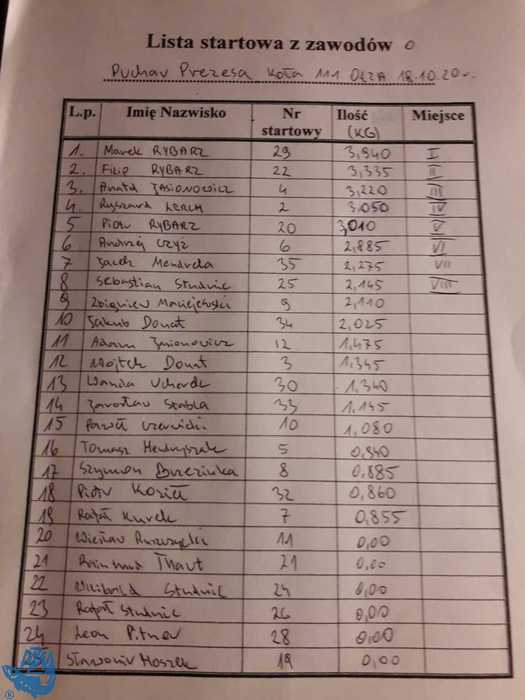 Lista startowa z zawodów o
Puchar Prezesa Koła 111 Olza 18.10.20 r.
L.p. Imię Nazwisko Nr startowy Ilość (KG) Miejsce
1. Marek RYBARZ 29 3,940 I
2. Filip RYBARZ 22 3,335 II
3. Anatol JASIONOWICZ 4 3,220 III
4. Ryszard LERCH 2 3,050 IV
5 Piotr RYBARZ 20 3,010 V
6 Andrzej CZYŻ 6 2,885 VI
7 Jacek Mendrela 35 2,275 VII
8 Sebastian Studnic 25 2,145 VIII
9 Zbigniew Maciejewski 9 2,110
10 Jakub Donat 34 2,025
11 Adam 12 1,475
12 Wojtek Donat 3 1,345
13 Wanda 30 1,340
14 Jarosław Szabla 33 1,145
15 Paweł Czerwicki 10 1,080
16 Tomasz 5 0,940
17 Szymon Brzezinka 8 0,885
18 Piotr Kozieł 32 0,860
19 Rafał Kurek 7 0,855
20 Wiesław 11 0,00
21 Thaut 21 0,00
22 Wilibald Studnic 24 0,00
23 Rafał Studnic 26 0,00
24 Leon Pitner 28 0,00
25 Sławomir Moszek 19 0,00